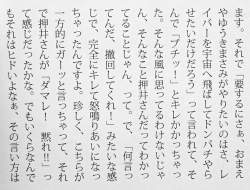 ます。それで「要するにさぁ、おまえ
やゆうきまさみがやりたいのはさ、レ
イバーを宇宙へ飛ばしてドンパチやら
せたいだけだろう」って言われて、そ
んで「プチッ!」とキレかかっちゃっ
た。そんな風に思ってるわけないじゃ
ん、そんなこと押井さんだってわかっ
てることじゃん、って。で、「何言っ
てんだ、撤回してくれ!」みたいな感
じで、完全にキレて怒鳴りあいになっ
ちゃったんですよ。珍しく、こちらが
一方的にガーッと言っちゃって、それ
で押井さんが「ダマレ! 黙れ!!」っ
て感じだったかな。でもいくらなんで
もそれはヒドいよなぁ、その言い方は